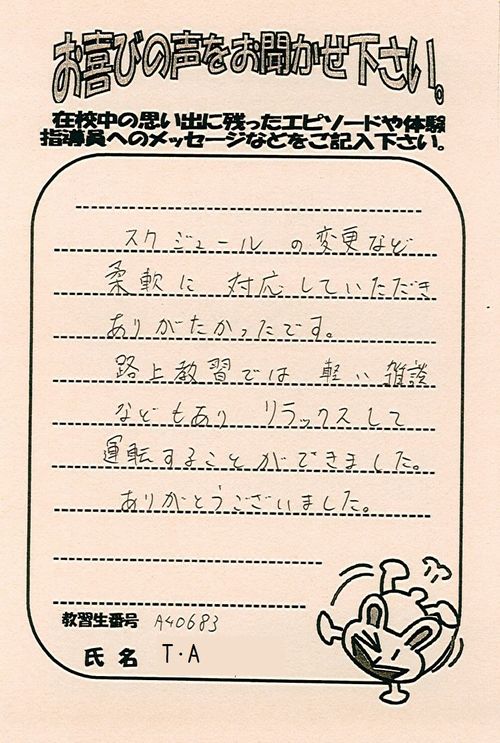 お喜びの声をお聞かせ下さい。
在校中の思い出に残ったエピソードや体験
指導員へのメッセージなどをご記入下さい。
スケジュールの変更など
柔軟に対応していただき
ありがたかったです。
路上教習では軽い雑談
などもあり リラックスして
運転することができました。
ありがとうございました。
教習生番号 A40683
氏名 T・A